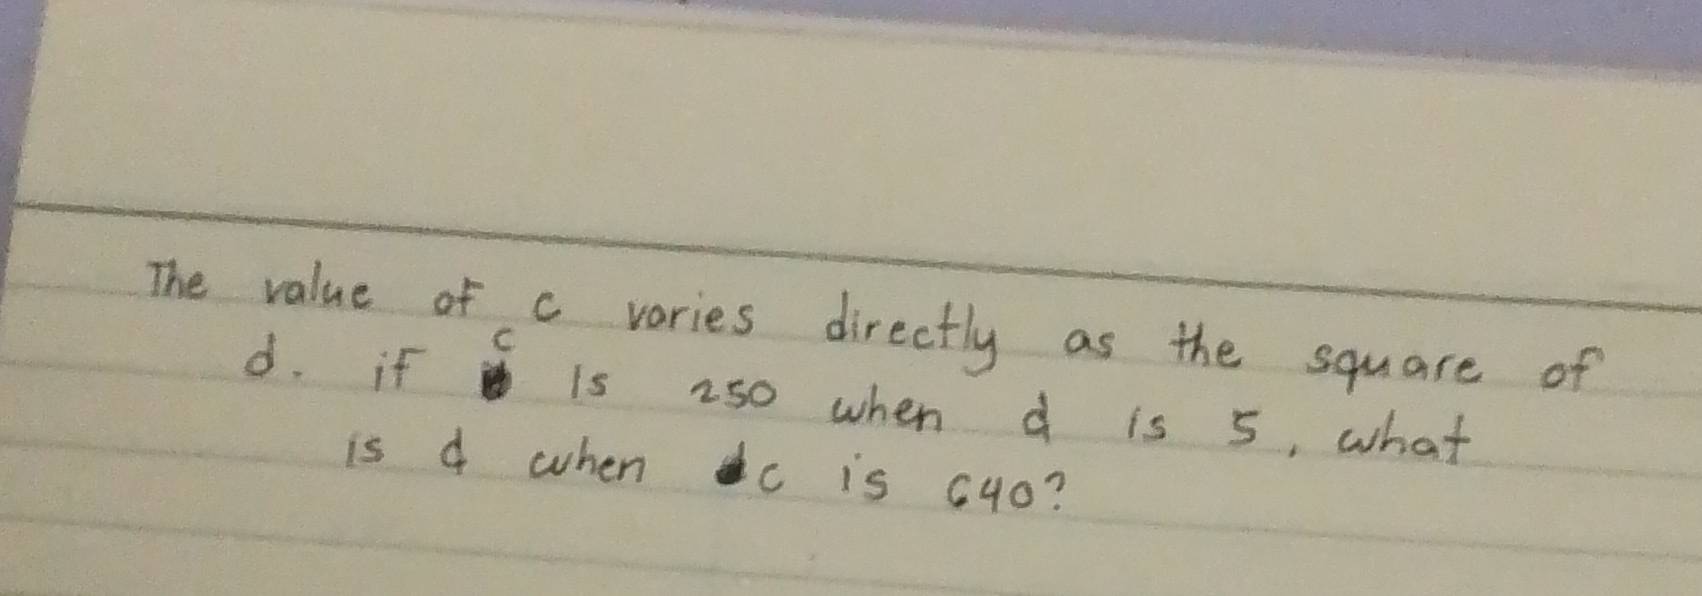 The value of c varies directly as the square of
d. if c is 250 when d is 5, what
is d when c is 640?